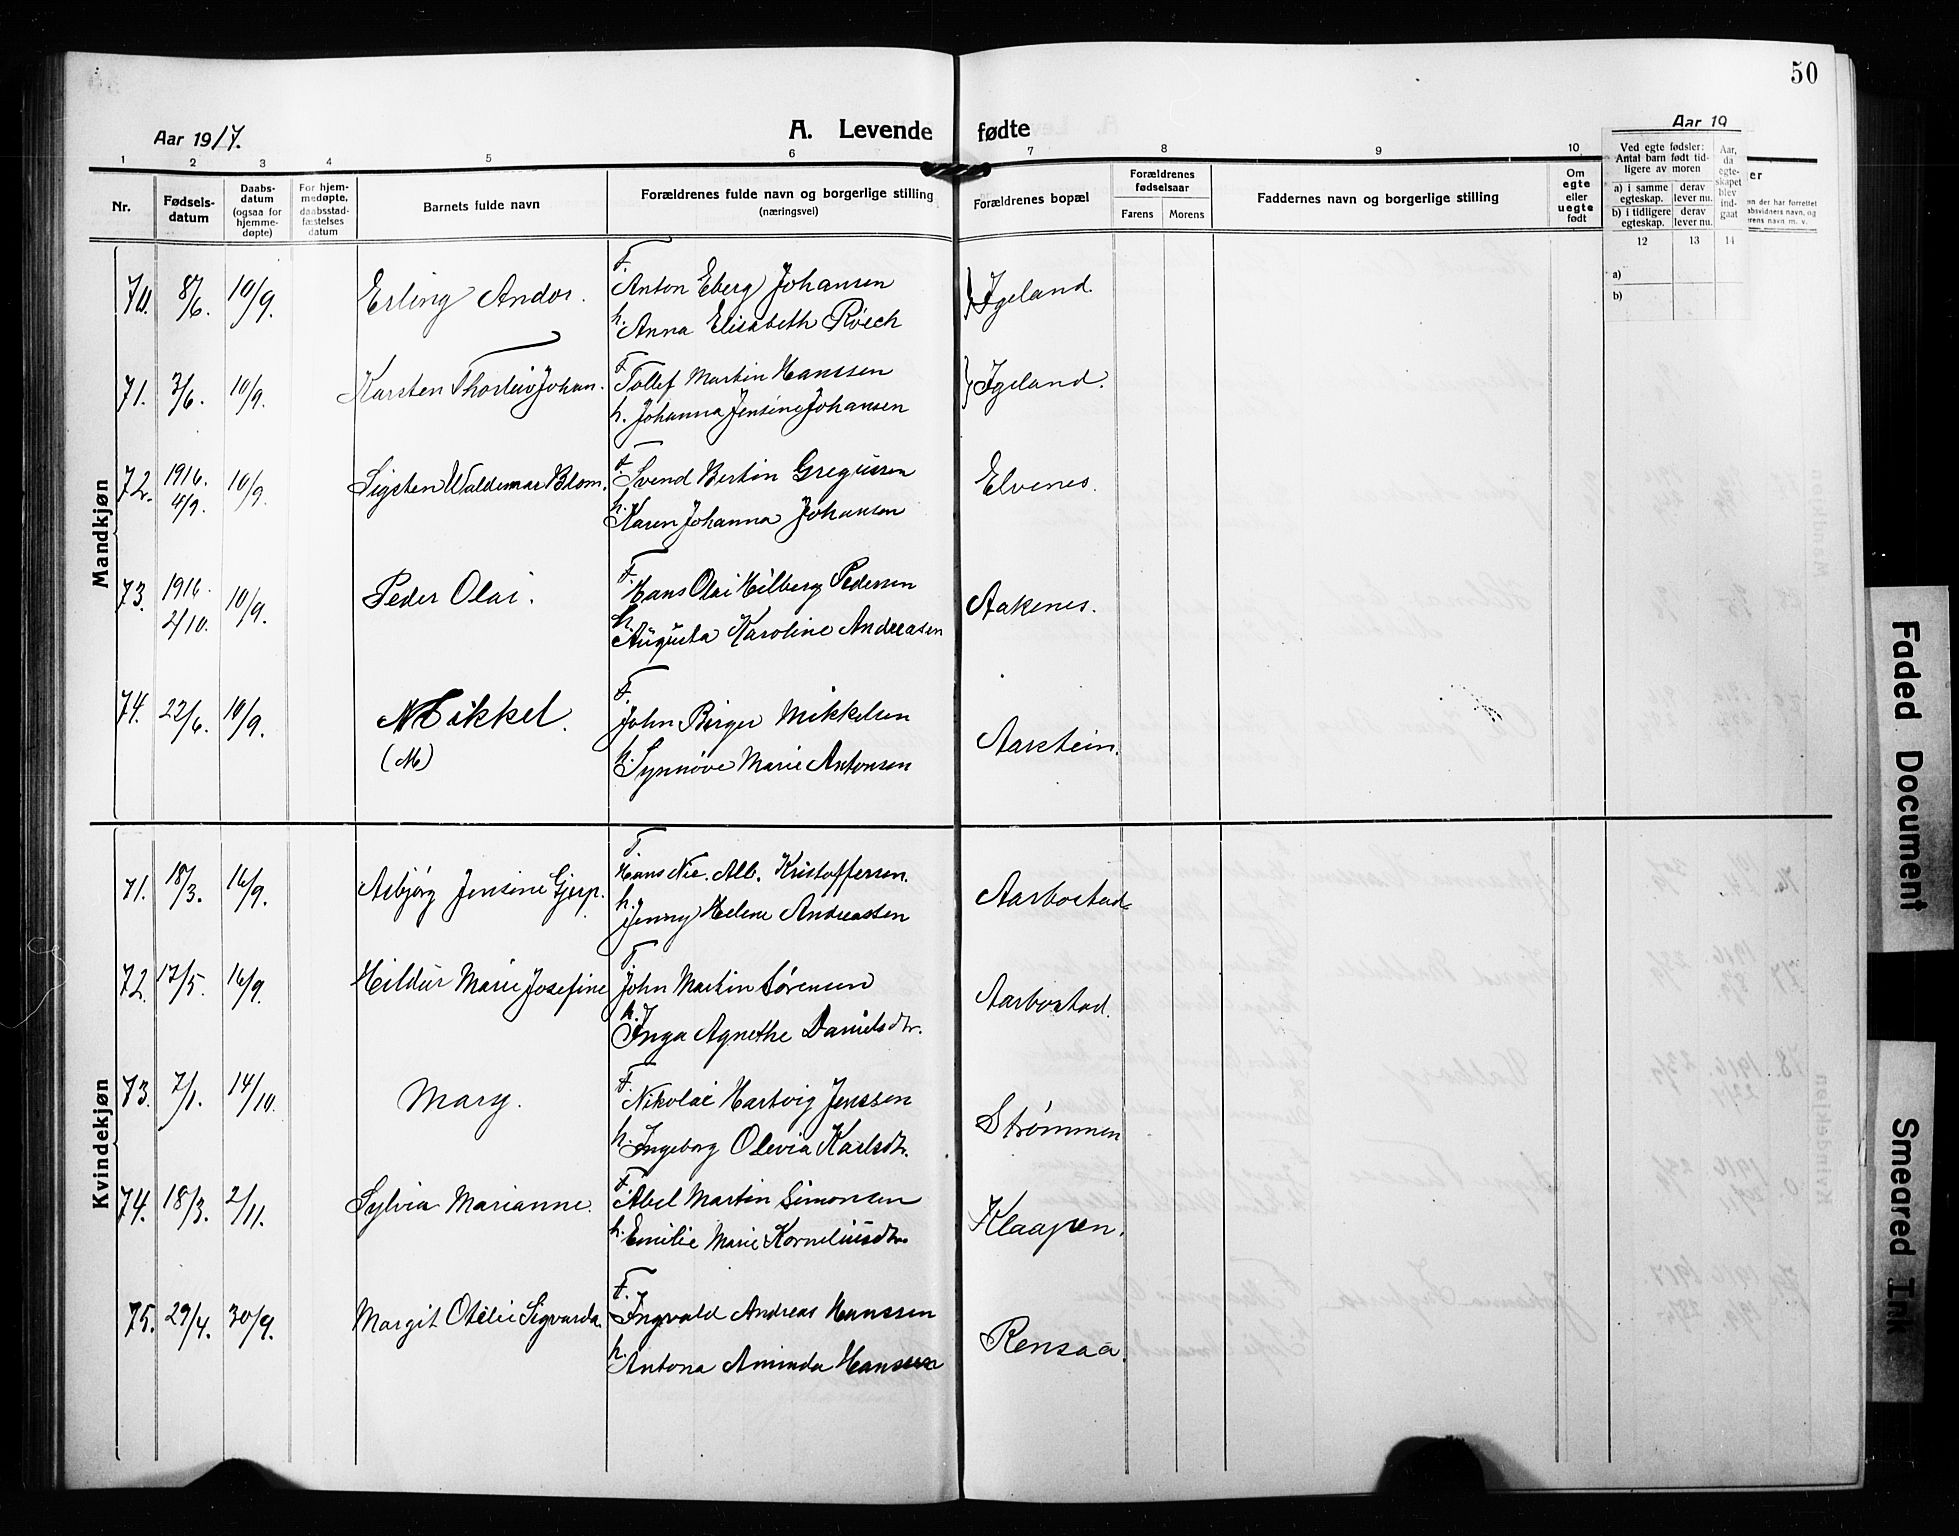 50
Aar 1917.
A. Levende fødte
Aar 19
1 2 3 4 5 6 7 8 9 10
Nr.
Fødsels-
datum
Daabs-
datum
(ogsaa for
hjemme-
døpte)
For hjem-
medøpte,
daabsstad-
fæstelses
datum
Barnets fulde navn
Forældrenes fulde navn og borgerlige stilling
(næringsvei)
Forældrenes bopæl
Forældrenes
fødselsaar
Farens Morens
Faddernes navn og borgerlige stilling
Om
egte
eller
uegte
født
Ved egte fødsler:
Antal barn født tid-
ligere av moren
a) i samme
egteskap.
derav
lever nu.
b) i tidligere
egteskap.
derav
lever nu.
Aar,
da
egte-
skapet
blev
ind-
gaat
12 13 14
a)
b)
er
en der har forrettet
absvidners navn, og
rens navn m. v.
Mandkjøn
70. 8/6. 10/9. Erling Andor.
F.
Anton Eberg Johansen
h. Anna Elisabeth Röech
Igeland.
71. 3/6. 10/9. Karsten Thorleiv Johan.
F.
Tollef Martin Hanssen
h. Johanna Jensine Johansen
Igeland.
72. 1916. 4/9. 10/9. Sigsten Waldemar Blom.
F.
Svend Bertin Gregussen
h. Karen Johanna Johansen
Elvenes.
73. 1916. 2/10. 10/9. Peder Olai.
F.
Hans Olai Hilberg Pedersen
h. Augusta Karoline Andreasen
Aakenes.
74. 22/6. 10/9. Mikkel.
(M)
F.
John Birger Mikkelsen
h. Synnøve Marie Antonsen
Aarstein.
Kvindekjøn
71. 18/3. 16/9. Asbjørg Jensine Gjerp.
F.
Hans Nic. Alb. Kristoffersen.
h. Jenny Helene Andreassen
Aarbostad
72. 17/5. 16/9. Hildur Marie Josefine
F.
John Martin Sørensen
h. Inga Agnethe Danielsdtr.
Aarbostad.
73. 7/1. 14/10. Mary.
F.
Nikolai Hartvig Jenssen
h. Ingeborg Olevia Karlsdtr.
Strømmen
74. 18/3. 2/11. Sylvia Marianne.
F. Abel Martin Simonsen
h. Emilie Marie Korneliusdtr.
Klaapen.
75. 29/4. 30/9. Margit Otelie Sigvarda.
F.
Ingvald Andreas Hanssen
h. Antona Aminda Hanssen
Rensaa.
Faded Document
Smeared Ink